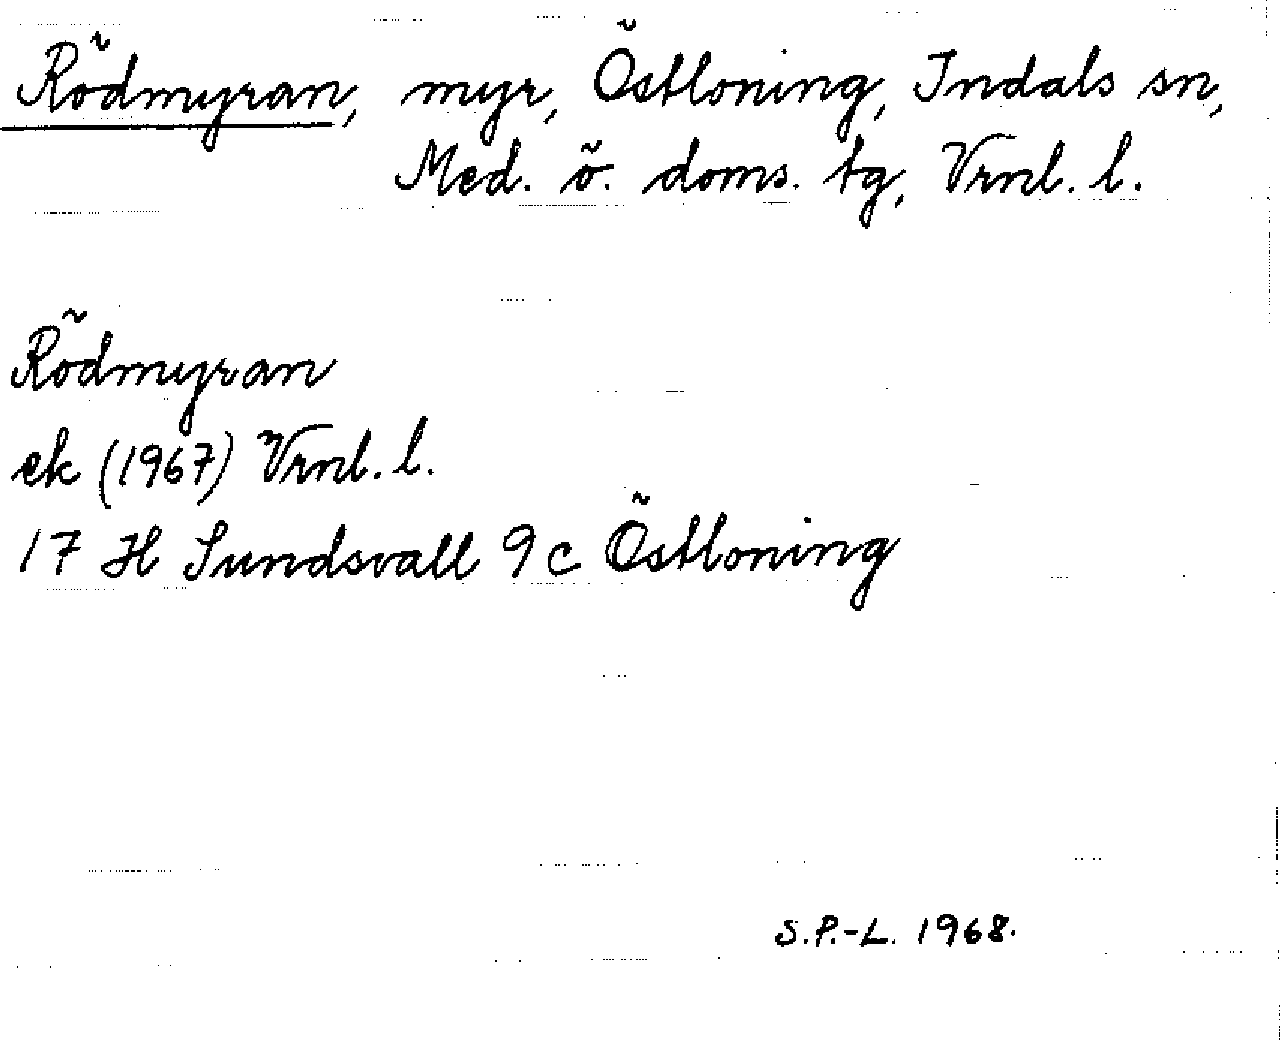 Rödmyran, myr, Östloning, Indals sn,
Med. ö. doms. tg, Vrnl. l.
Rödmyran
ek (1967) Vrnl. l.
17 H Sundsvall 9c Östloning
S.P.-L. 1968.